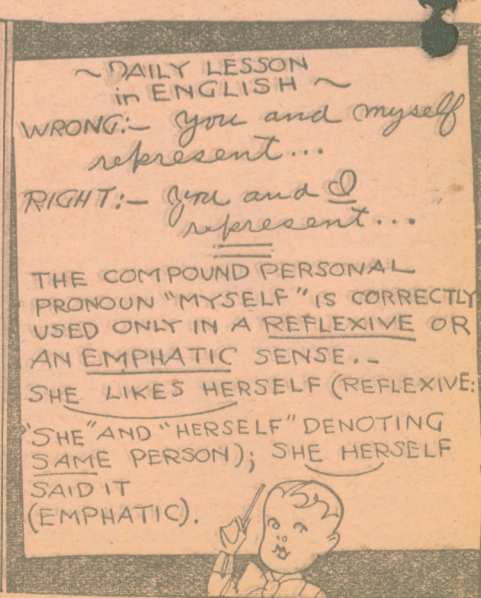 ~ DAILY LESSON
in ENGLISH ~
WRONG:- You and myself
represent...
RIGHT:- You and I
represent...
THE COMPOUND PERSONAL
PRONOUN "MYSELF" IS CORRECTLY
USED ONLY IN A REFLEXIVE OR
AN EMPHATIC SENSE.-
SHE LIKES HERSELF (REFLEXIVE:
"SHE" AND "HERSELF" DENOTING
SAME PERSON); SHE HERSELF
SAID IT
(EMPHATIC).